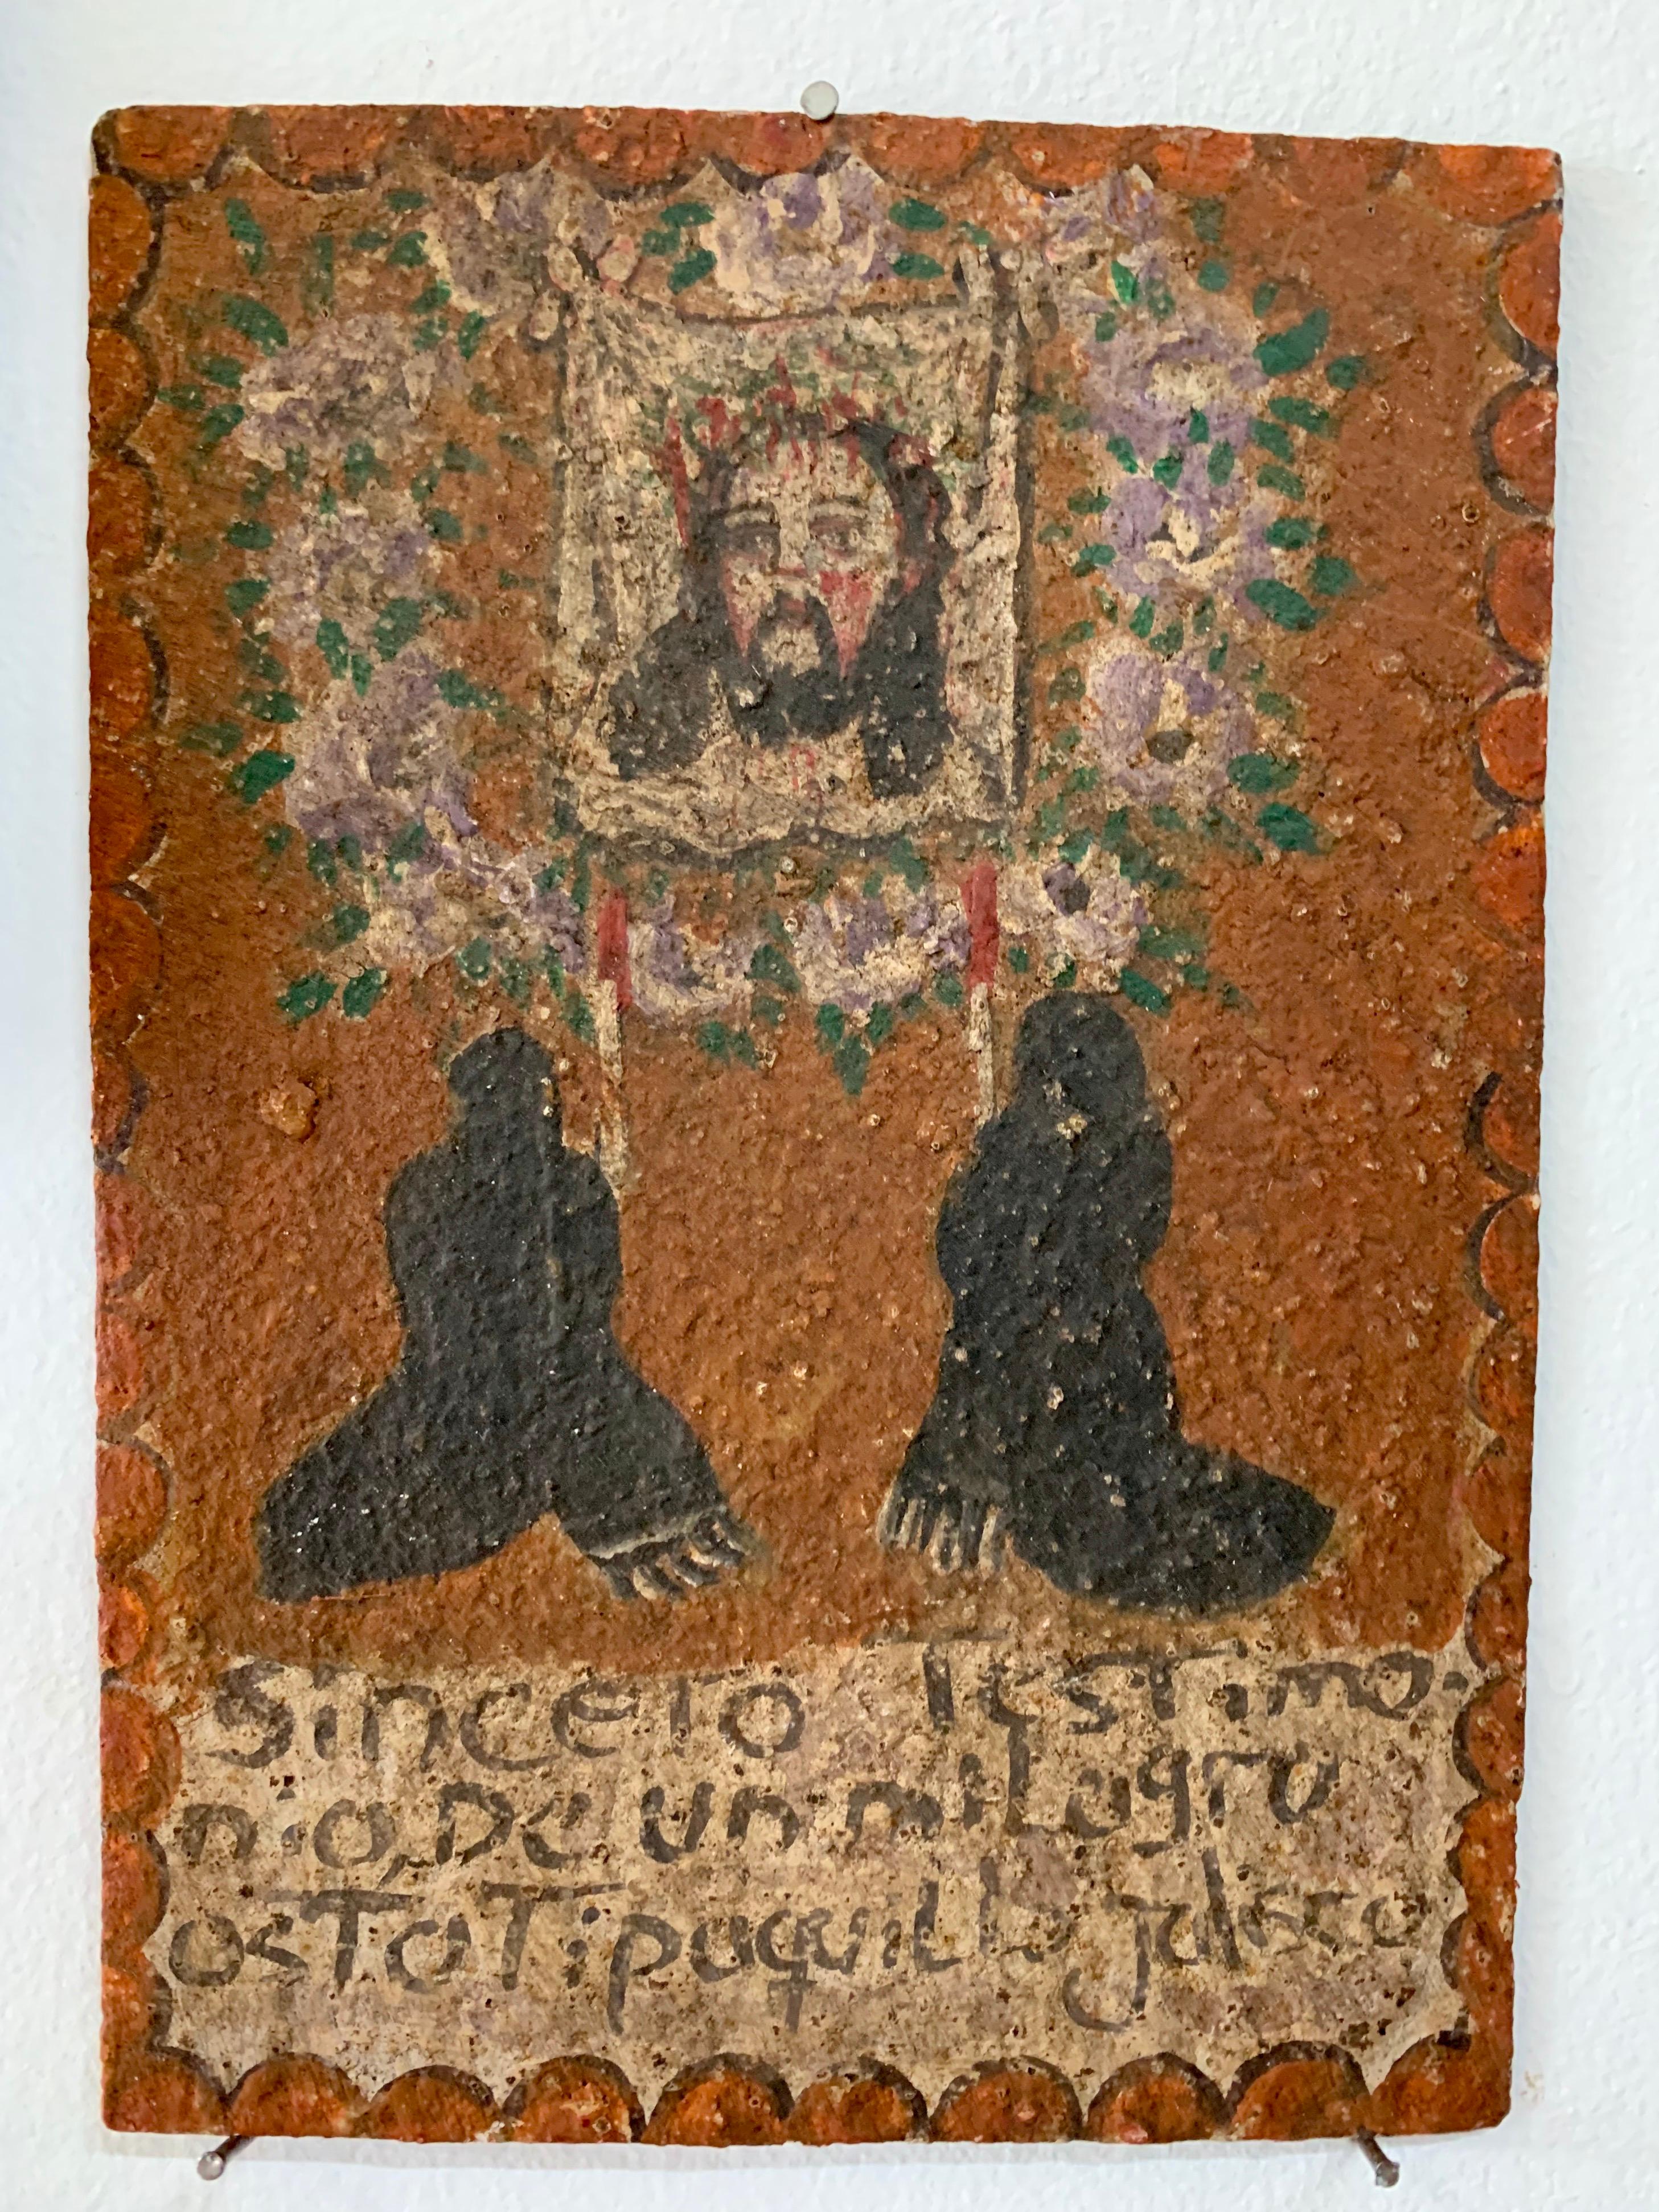 Sincero Testimo-
nio, De un milagro
ostoTipaquillo jalisco